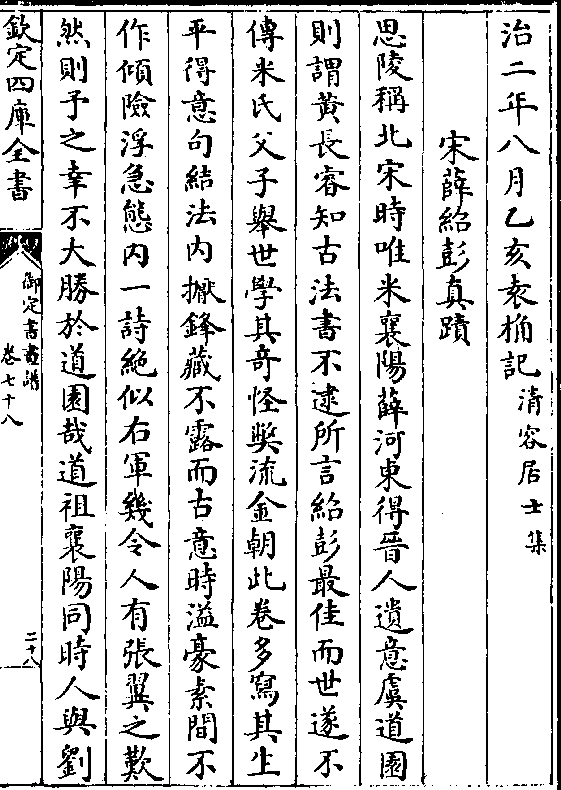 治二年八月乙亥袁桷記清容居士集
宋薛紹彭真蹟
思陵稱北宋時唯米襄陽薛河東得晉人遺意虞道園
則謂黃長睿知古法書不逮所言紹彭最佳而世遂不
傳米氏父子舉世學其奇怪弊流金朝此卷多寫其生
平得意句結法内擫鋒藏不露而古意時溢豪素間不
作傾險浮急態内一詩絶似右軍幾令人有張翼之歎
然則予之幸不大勝於道園哉道祖襄陽同時人與劉
欽定四庫全書
御定書畫譜
卷七十八
二十八